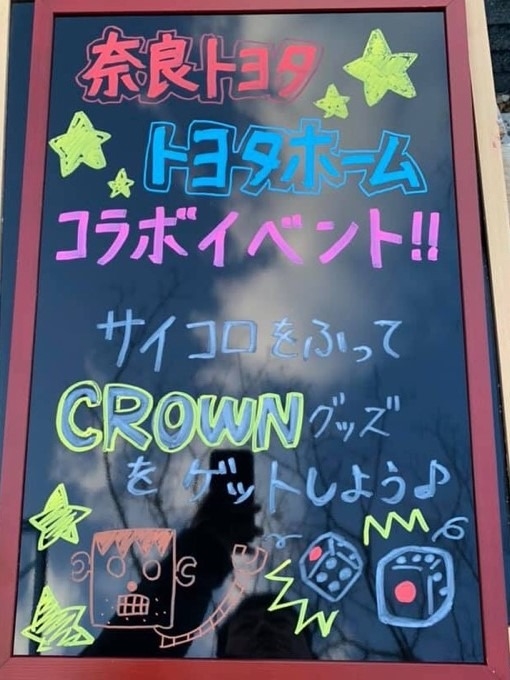 奈良トヨタ
トヨタホーム
コラボイベント!!
サイコロをふって
CROWNグッズ
をゲットしよう♪